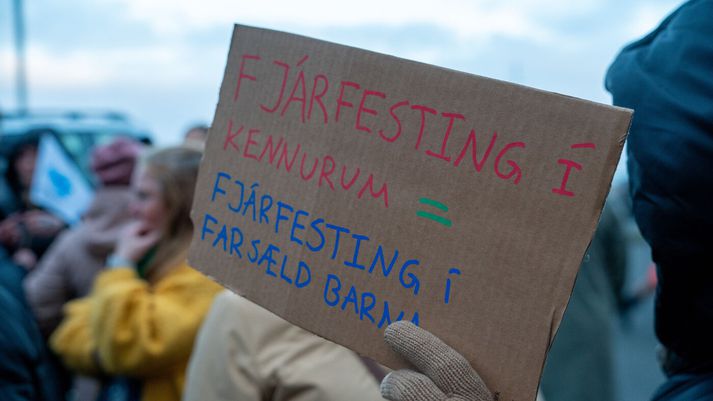 FJÁRFESTING Í
KENNURUM =
FJÁRFESTING Í
FARSÆLD BARNA